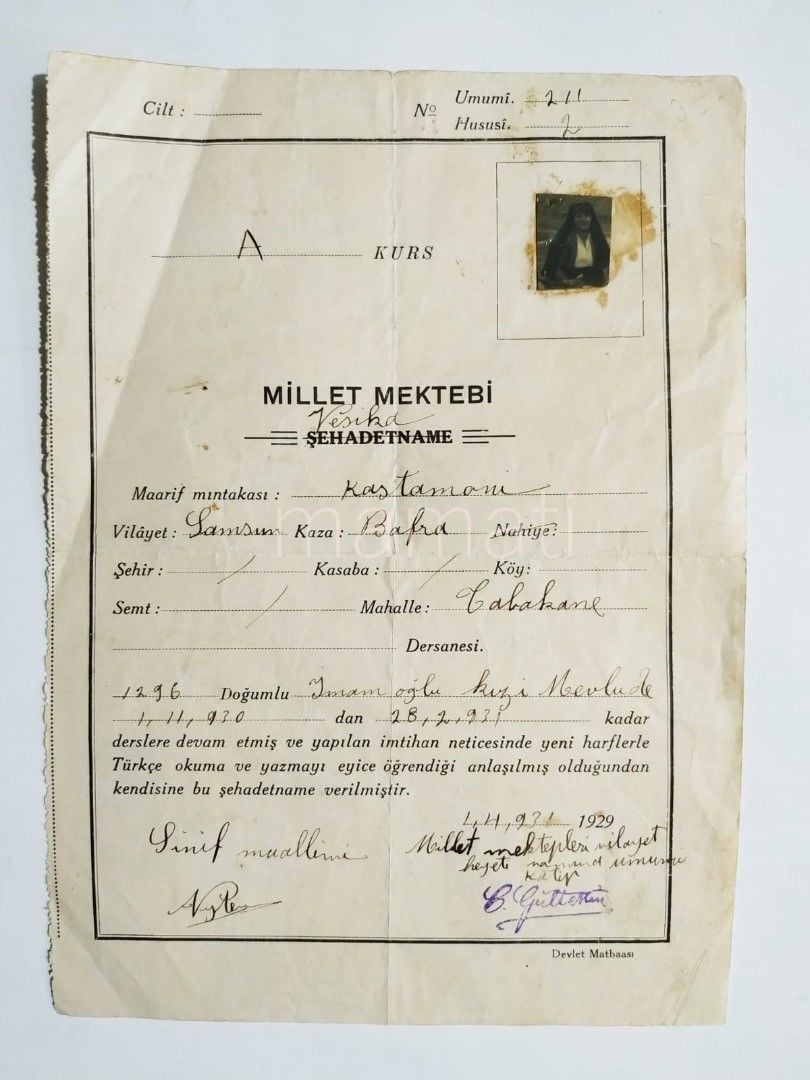 Cilt :
Nº Umumî. 211
Hususî. 2
A KURS
MİLLET MEKTEBİ
Vesika
ŞEHADETNAME
Maarif mıntakası : Kastamoni
Vilâyet : Samsun Kaza : Bafra Nahiye:
Şehir : / Kasaba : / Köy:
Semt : / Mahalle : Tabakane
Dersanesi.
1296 Doğumlu İmam oğlu kızi Mevlude
1, 11, 930 dan 28, 2, 931 kadar
derslere devam etmiş ve yapılan imtihan neticesinde yeni harflerle
Türkçe okuma ve yazmayı eyice öğrendiği anlaşılmış olduğundan
kendisine bu şehadetname verilmiştir.
1, 4, 931 1929
Sinif maallimi
Millet mektepleri vilayet
heyeti namına umumi
katip
Devlet Matbaası
mamati